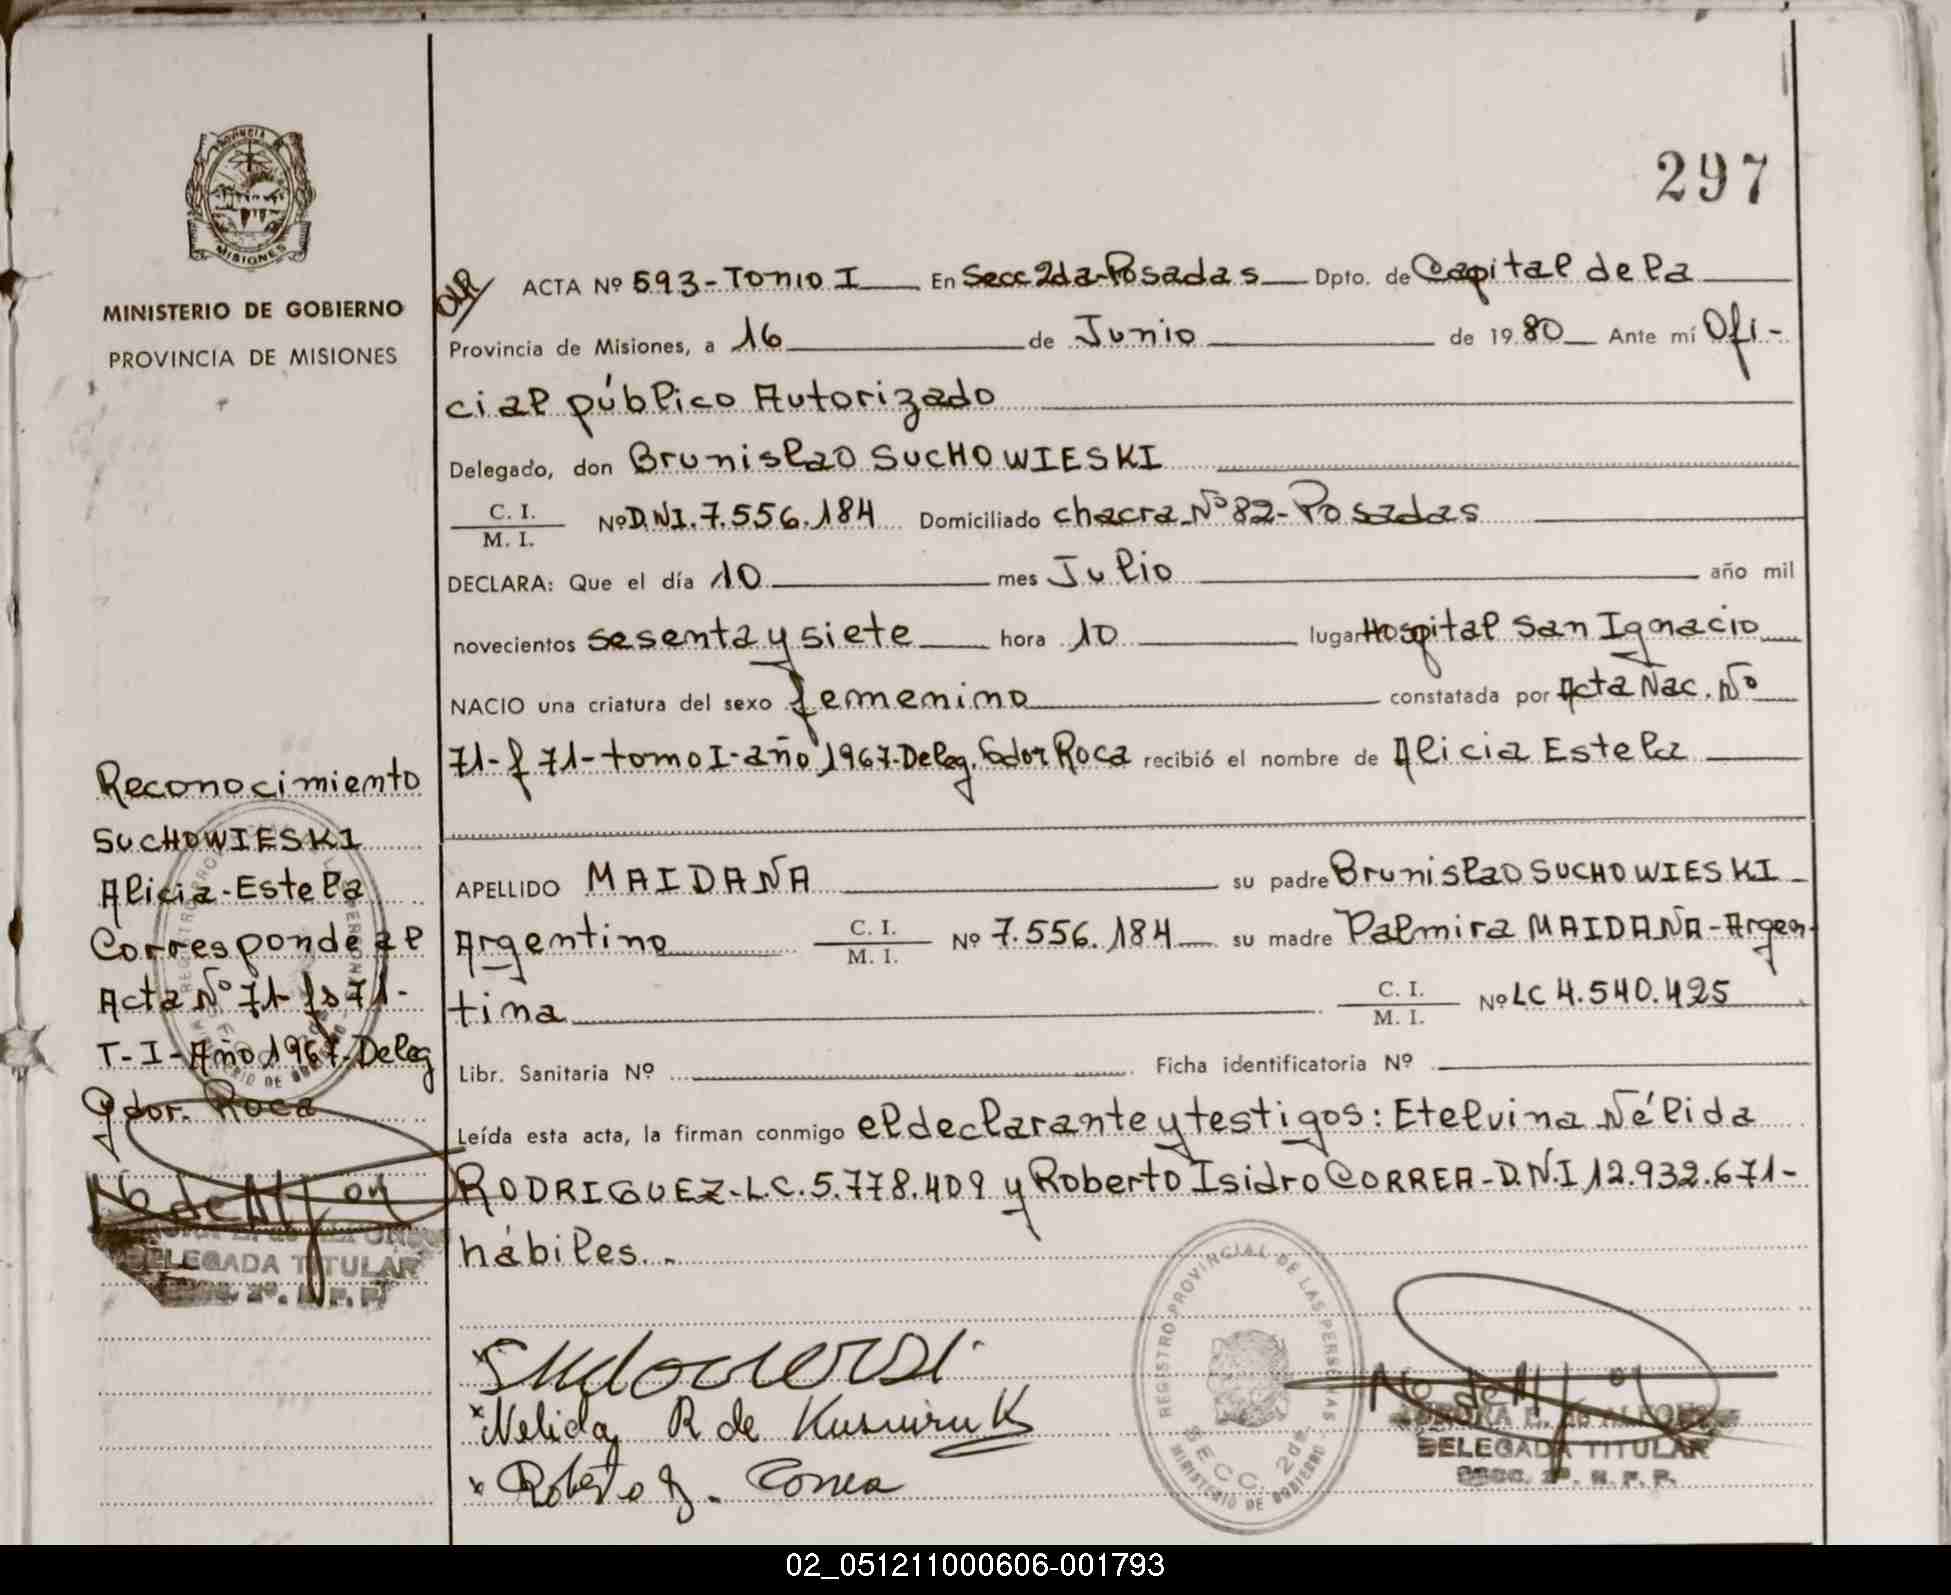 297
PROVINCIA
MISIONES
MINISTERIO DE GOBIERNO
PROVINCIA DE MISIONES
Reconocimiento
SUCHOWIESKI
Alicia-Estela
Corresponde al
Acta Nº 71- fs 71-
T-I-Año 1967-Deleg
Gdor. Roca
DELEGADA TITULAR
ACTA Nº 593-Tomo I En Secc 2da-Posadas Dpto. de Capital de la
Provincia de Misiones, a 16 de Junio de 1980 Ante mí Ofi-
cial público Autorizado
Delegado, don Brunislao SUCHOWIESKI
C. I.
M. I. Nº D.NI.7.556.184 Domiciliado chacra Nº 82-Posadas
DECLARA: Que el día 10 mes Julio año mil
novecientos sesenta y siete hora 10 lugar Hospital San Ignacio
NACIO una criatura del sexo femenino constatada por Acta Nac. Nº
71-f 71-tomo I-año 1967-Deleg. Gdor Roca recibió el nombre de Alicia Estela
APELLIDO MAIDANA su padre Brunislao SUCHOWIESKI
Argentino C. I.
M. I. Nº 7.556.184 su madre Palmira MAIDANA-Argen-
tina C. I.
M. I. Nº LC 4.540.425
Libr. Sanitaria Nº Ficha identificatoria Nº
Leída esta acta, la firman conmigo el declarante y testigos: Etelvina Nélida
RODRIGUEZ-L.C.5.778.409 y Roberto Isidro CORREA-D.N.I 12.932.671-
hábiles.-
Nelida R de
Roberto J. Correa
REGISTRO PROVINCIAL DE LAS PERSONAS
SECC. 2da.
MINISTERIO DE GOBIERNO
DELEGADA TITULAR
02_051211000606-001793